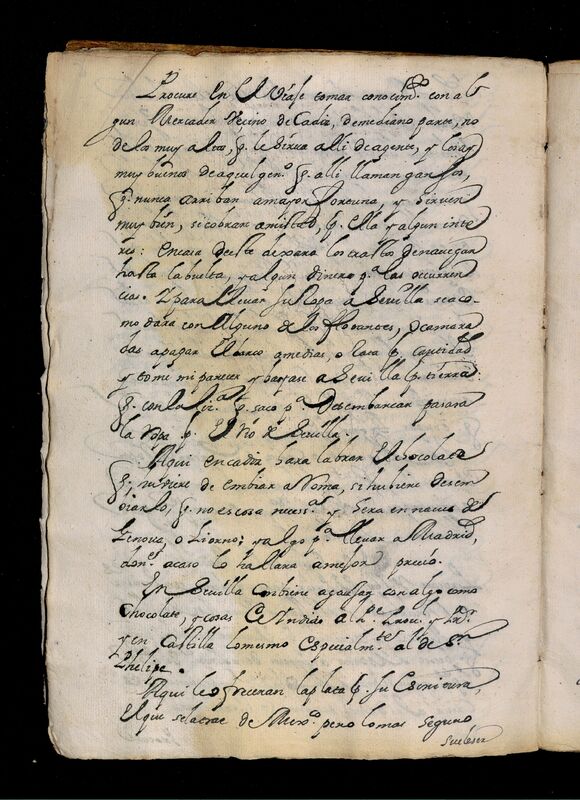 Procure En El Viaje tomar conocim.to con al
gun Mercader Vecino de Cadiz, de mediano parte, no
de los muy altos, q. le sirva alli de agente, y los ay
muy buenos de aquel gen.o q. alli llaman
q. nunca arriban a mayor fortuna, y sirven
muy bien, si cobran amistad, p. Ella y algun inte
res: en casa deste dexara los trastos de navegar
hasta la buelta, y algun dinero p.a las ocurren
cias. Y para llevar su Ropa a Sevilla se aco
modara con alguno de los flotantes, o camara
das a pagar El barco a medias, o tasa p. cantidad
y tome mi parecer y bayase a Sevilla p. tierra:
q. con la q. saco p.a Desembarcar pasara
la Ropa p. El Rio de Sevilla.
Aqui en Cadiz hara labrar El chocolate
q. hubiere de embiar a Roma, si hubiere de em
biarlo, q. no es cosa necess.a y sera en navio de
Genova, o Liorno; y algo p.a llevar a Madrid,
don.e acaso lo hallara a mejor precio.
En Sevilla conbiene agasajar con algo como
Chocolate, y cosas de Indias al P.e Proc.r y
y en Castilla lo mesmo especialm.te al de S.n
Phelipe.
Aqui le ofreceran la plata p. su Escritura,
El que se la trae de pero lo mas seguro
suele ser